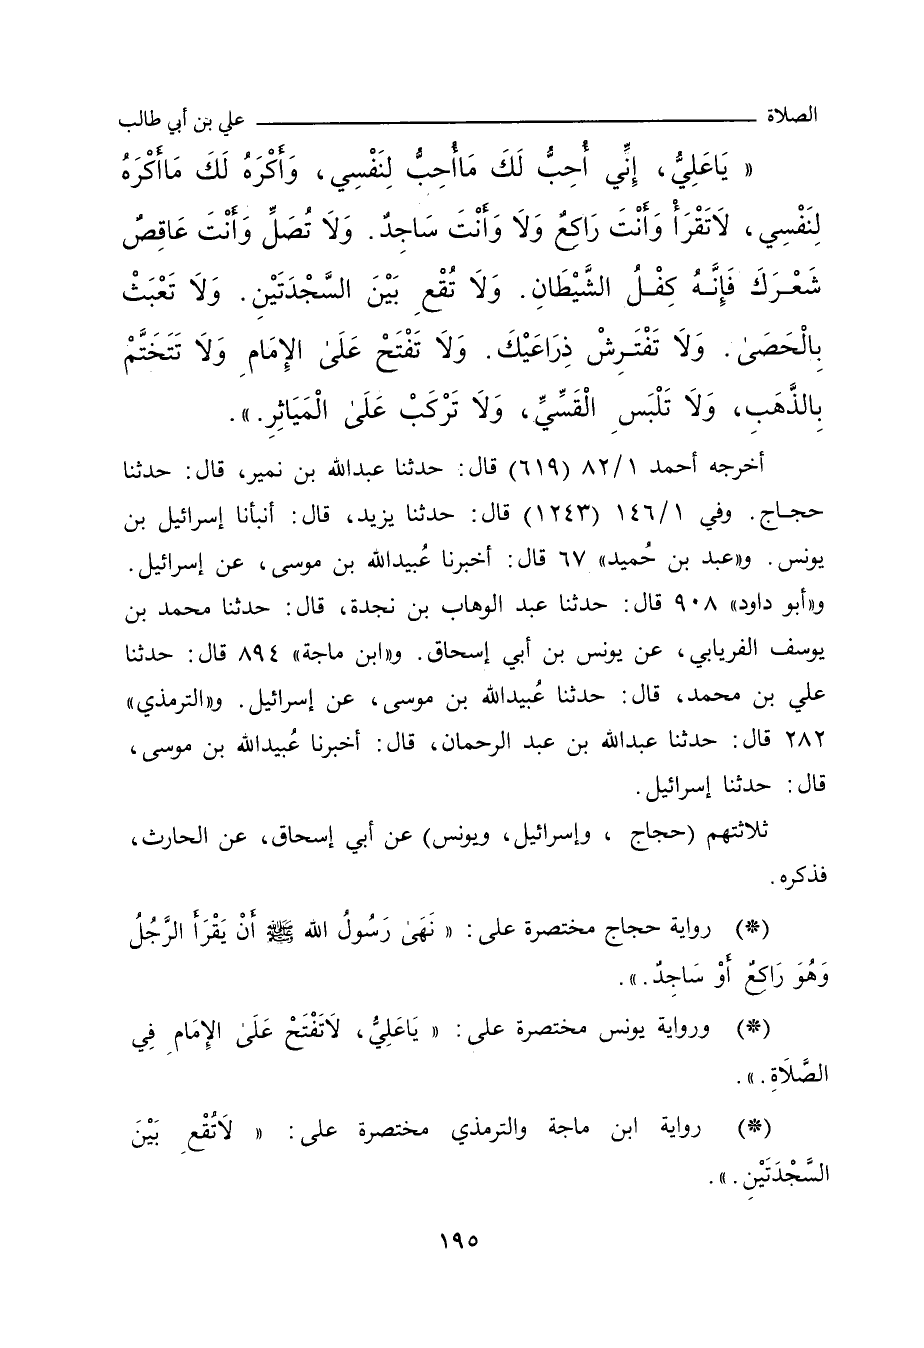 الصلاة ــــــــــــــــ علي بن أبي طالب
« يَاعَلِيُّ، إِنِّي أُحِبُّ لَكَ مَاأُحِبُّ لِنَفْسِي، وَأَكْرَهُ لَكَ مَاأَكْرَهُ
لِنَفْسِي، لَاتَقْرَأْ وَأَنْتَ رَاكِعٌ وَلَا وَأَنْتَ سَاجِدٌ. وَلَا تُصَلِّ وَأَنْتَ عَاقِصٌ
شَعْرَكَ فَإِنَّهُ كِفْلُ الشَّيْطَانِ. وَلَا تُقْعِ بَيْنَ السَّجْدَتَيْنِ. وَلَا تَعْبَثْ
بِالْحَصَىٰ. وَلَا تَفْتَرِشْ ذِرَاعَيْكَ. وَلَا تَفْتَحْ عَلَىٰ الإِمَامِ وَلَا تَتَخَتَّمْ
بِالذَّهَبِ، وَلَا تَلْبَسِ الْقَسِّيِّ، وَلَا تَرْكَبْ عَلَىٰ الْمَيَاثِرِ.».
أخرجه أحمد ٨٢/١ (٦١٩) قال: حدثنا عبدالله بن نمير، قال: حدثنا
حجاج. وفي ١٤٦/١ (١٢٤٣) قال: حدثنا يزيد، قال: أنبأنا إسرائيل بن
يونس. و«عبد بن حُميد» ٦٧ قال: أخبرنا عُبيدالله بن موسى، عن إسرائيل.
و«أبو داود» ٩٠٨ قال: حدثنا عبد الوهاب بن نجدة، قال: حدثنا محمد بن
يوسف الفريابي، عن يونس بن أبي إسحاق. و«ابن ماجة» ٨٩٤ قال: حدثنا
علي بن محمد، قال: حدثنا عُبيدالله بن موسى، عن إسرائيل. و«الترمذي»
٢٨٢ قال: حدثنا عبدالله بن عبد الرحمان، قال: أخبرنا عُبيدالله بن موسى،
قال: حدثنا إسرائيل.
ثلاثتهم (حجاج ، وإسرائيل، ويونس) عن أبي إسحاق، عن الحارث،
فذكره.
(*) رواية حجاج مختصرة على: « نَهَىٰ رَسُولُ الله ﷺ أَنْ يَقْرَأَ الرَّجُلُ
وَهُوَ رَاكِعٌ أَوْ سَاجِدٌ.».
(*) ورواية يونس مختصرة على: « يَاعَلِيُّ، لَاتَفْتَحْ عَلَىٰ الإِمَامِ فِي
الصَّلَاةِ.».
(*) رواية ابن ماجة والترمذي مختصرة على: « لَاتُقْعِ بَيْنَ
السَّجْدَتَيْنِ.».
١٩٥